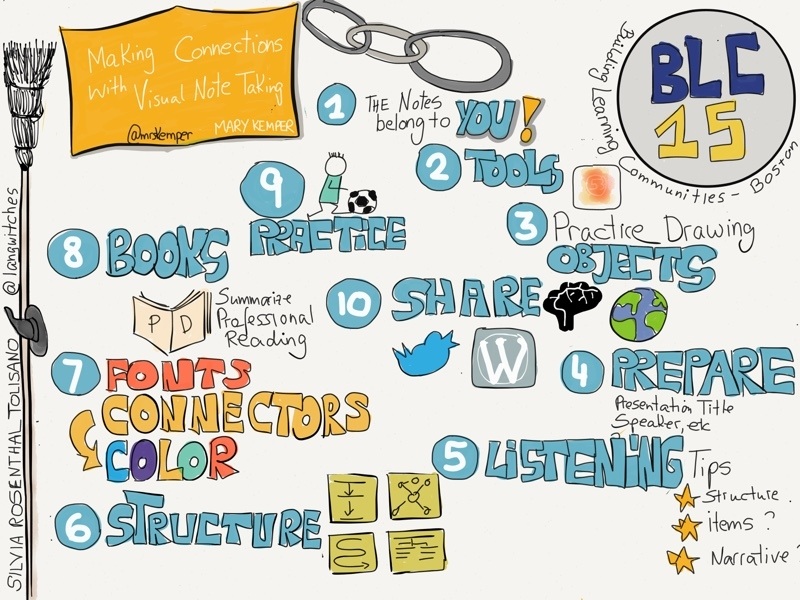 Making Connections
with Visual Note Taking
@mrskemper
MARY KEMPER
BLC
15
Building Learning Communities - Boston
1
THE Notes
belong to YOU!
2 TOOLS
3 Practice Drawing
OBJECTS
4 PREPARE
Presentation Title
Speaker, etc
5 LISTENING Tips
Structure.
items?
Narrative?
6 STRUCTURE
7 FONTS
CONNECTORS
COLOR
8 BOOKS
P D
Summarize
Professional
Reading
9
PRACTICE
10 SHARE
W
SILVIA ROSENTHAL TOLISANO @langwitches